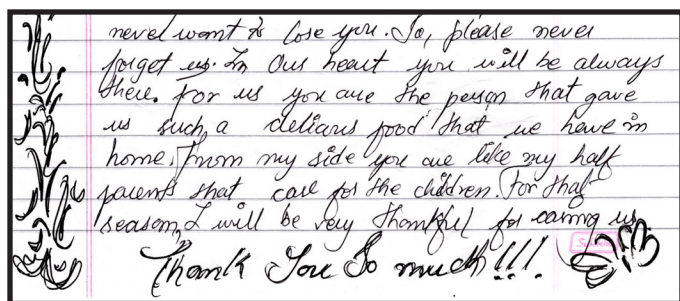 never want to lose you. So, please never
forget us. In Our heart you will be always
there. for us you are the person that gave
us such a delians food that we have in
home. From my side you are like my half
parents that care for the children. For that
season, I will be very thankful for caring us
Thank You So much!!!